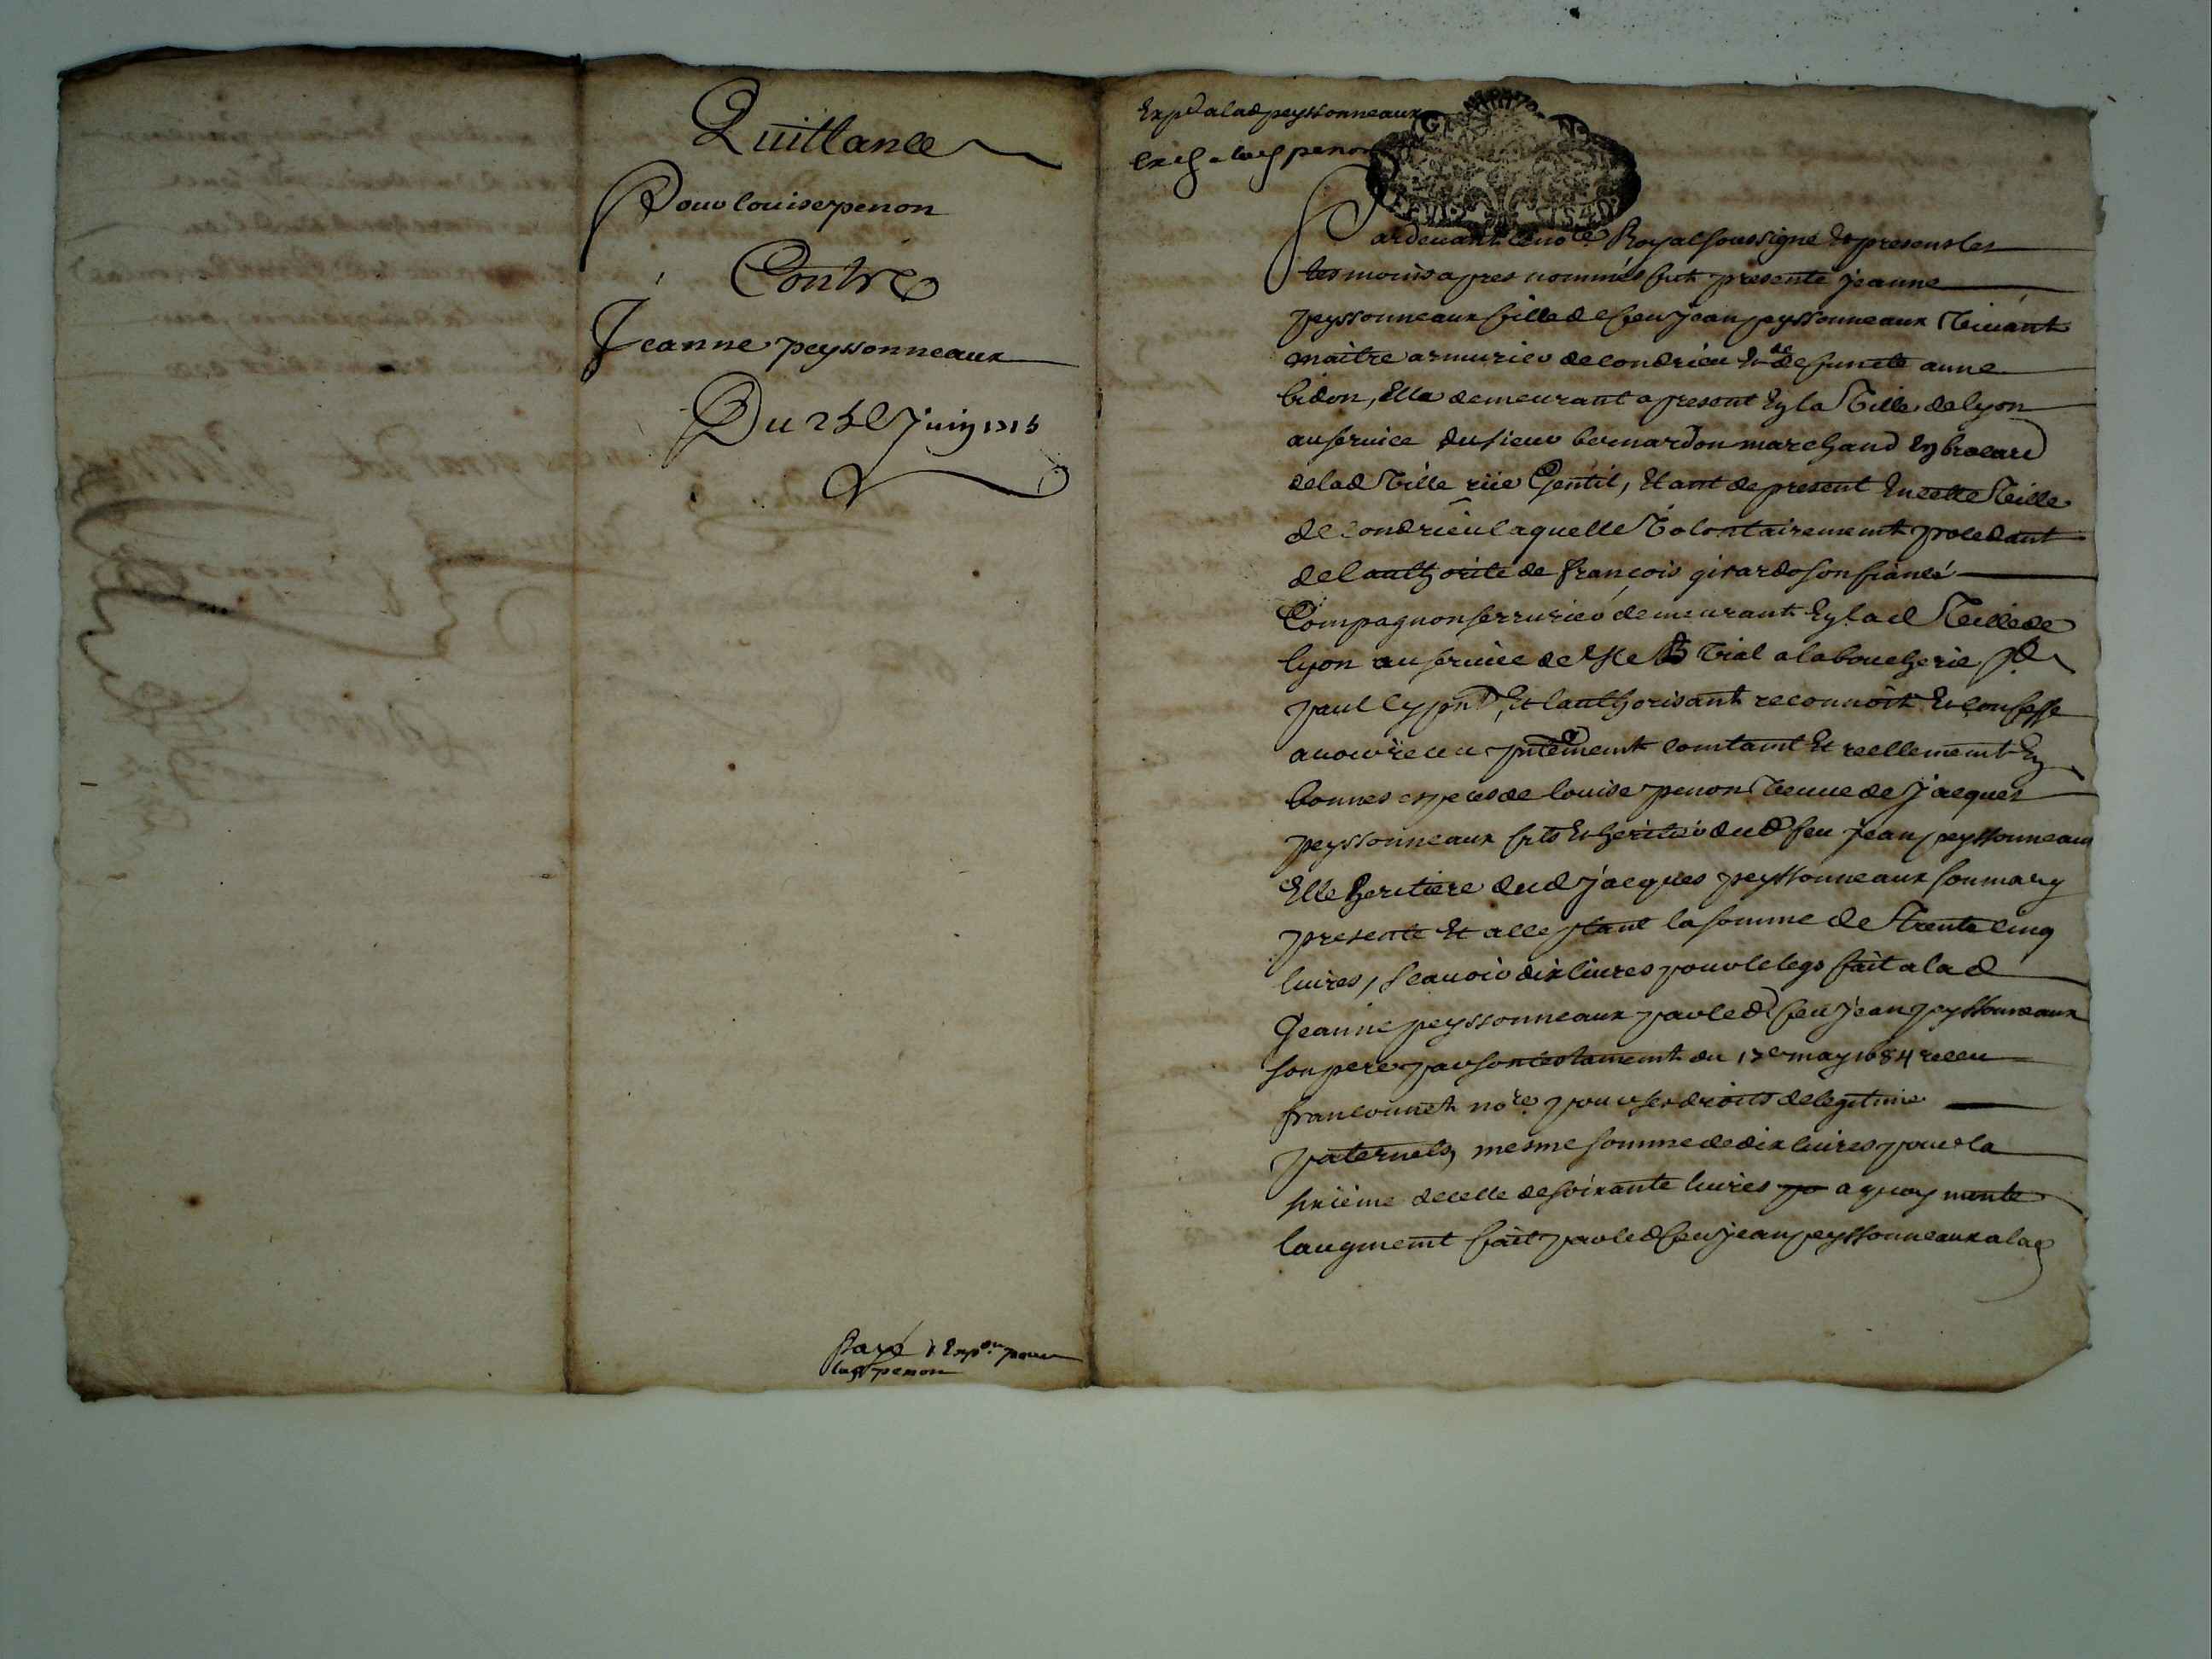 Quittance
Pour louise penon
Contre
Jeanne peyssonneaux
Du 25e Juin 1715
payé l'Exp.on pour
lad penon
Exp.é a lad peyssonneaux
a lad penon
Pardevant le no.re Royal soussigné Et presens les
tesmoins apres nommés fut presente jeanne
peyssonneaux fille de feu jean peyssonneaux Vivant
maitre armurier de Condrieu Et de defuncte anne
bidon, Elle demeurant a present En la Ville de lyon
au service du sieur bernardon marchand En brocard
de lad Ville rüe Gentil, Etant de present En cette Ville
de Condrieu laquelle Volontairement procedant
de l authorité de françois girardo son fiancé
Compagnon serrurier demeurant En lad Ville de
lyon au service de Vial a la boucherie St
paul Cy pnt, Et lauthorisant reconnoit Et confesse
avoir receu pntement comtant Et reellement En
bonnes especes de louise penon Veuve de Jacques
peyssonneaux fils Et heritier dud feu jean peyssonneaux
Elle heritiere dud jacques peyssonneaux son mary
presente Et acceptant la somme de Trente cinq
livres, scavoir dix livres pour le legs fait a lad
Jeanne peyssonneaux par led feu jean peyssonneaux
son pere par son testament du 17e may 1684 receu
franconnet no.re pour ses droits de legitime
paternels, mesme somme de dix livres pour la
sixieme de celle de soixante livres po a quoy monte
laugment fait par led feu jean peyssonneaux a lad